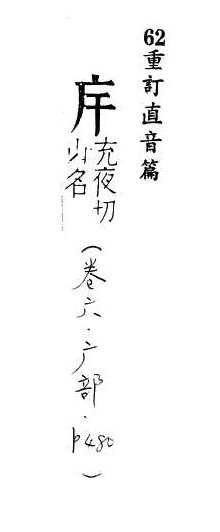 62重訂直音篇
充夜切
山名
(卷六·广部·p480)